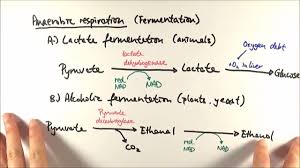 Anaerobic respiration (Fermentation)
A) Lactate fermentation (animals)
lactate dehydrogenase
Oxygen debt
Pyruvate → Lactate +O₂ in liver → Glucose
red. NAD NAD
B) Alcoholic fermentation (plants, yeast)
Pyruvate decarboxylase
Pyruvate → Ethanal → Ethanol
CO₂ red. NAD NAD